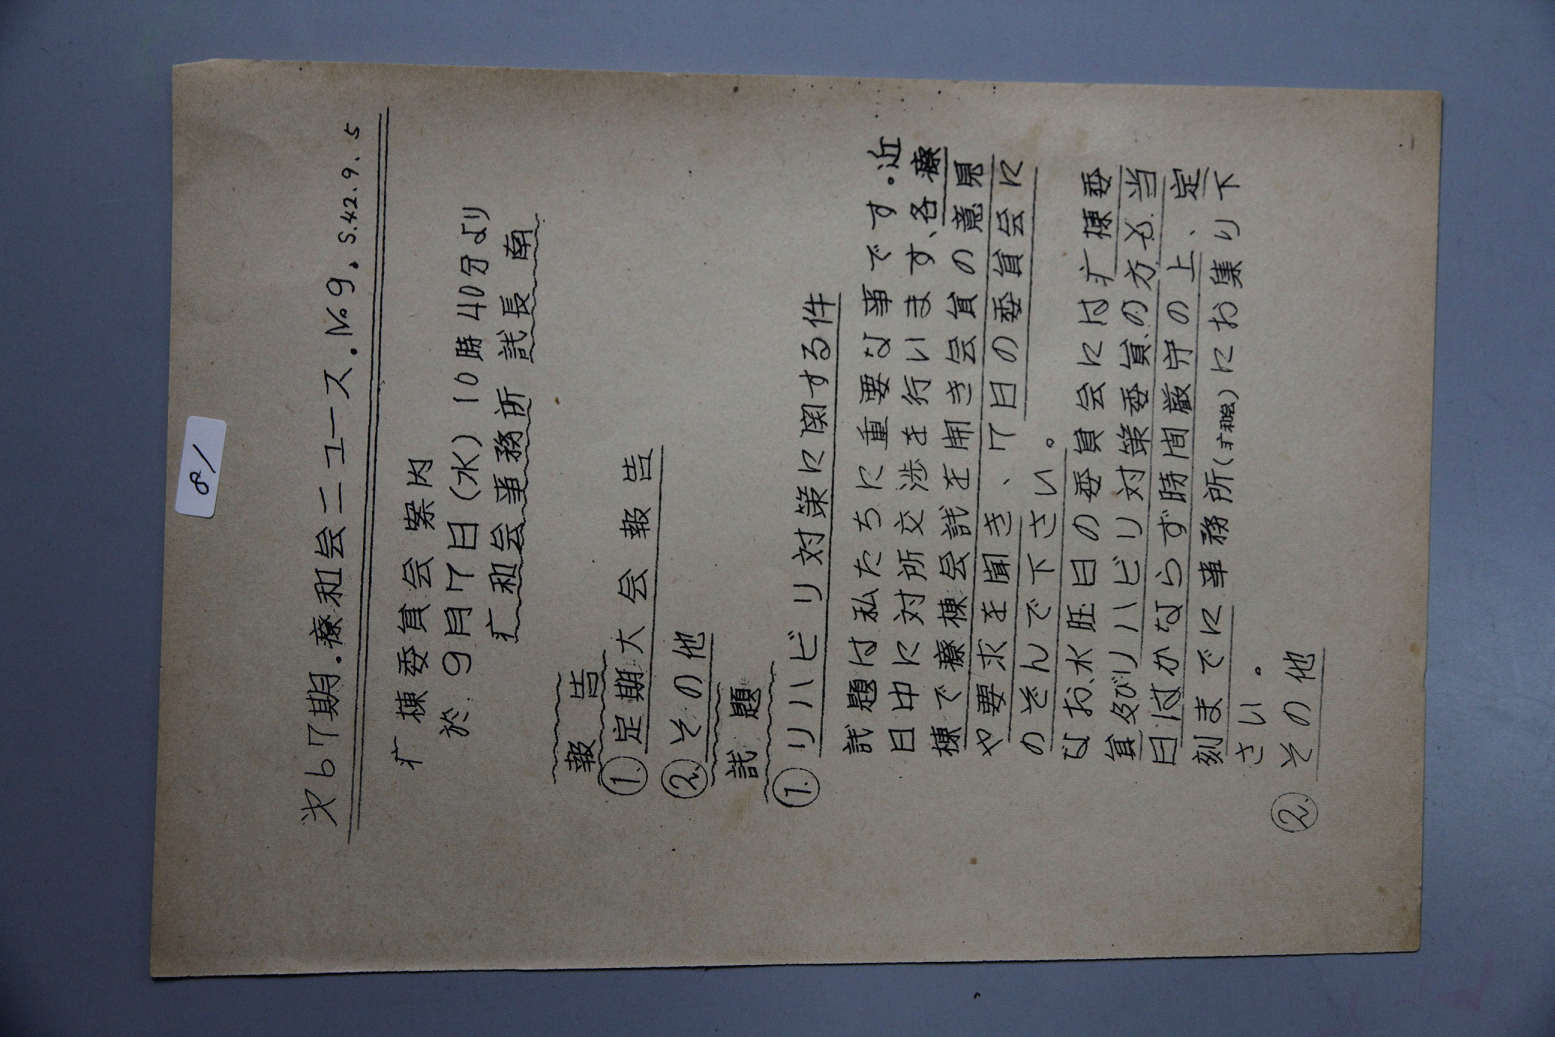 81
㐧67期.療和会ニュース.No9. S.42.9.5
疒棟委員会案内
於.9月7日(水)10時40分より
疒和会事務所 議長 南
報告
①定期大会報告
②その他
議題
①リハビリ対策に関する件
議題は私たちに重要な事です.近
日中に対所交渉を行います、各療
棟で療棟会議を開き会員の意見
や要求を聞き、7日の委員会に
のぞんで下さい。
なお、水旺日の委員会には疒棟委
員及びリハビリ対策委員の方も.当
日はかならず時間厳守の上、定
刻までに事務所(疒和会)にお集り下
さい。
②その他